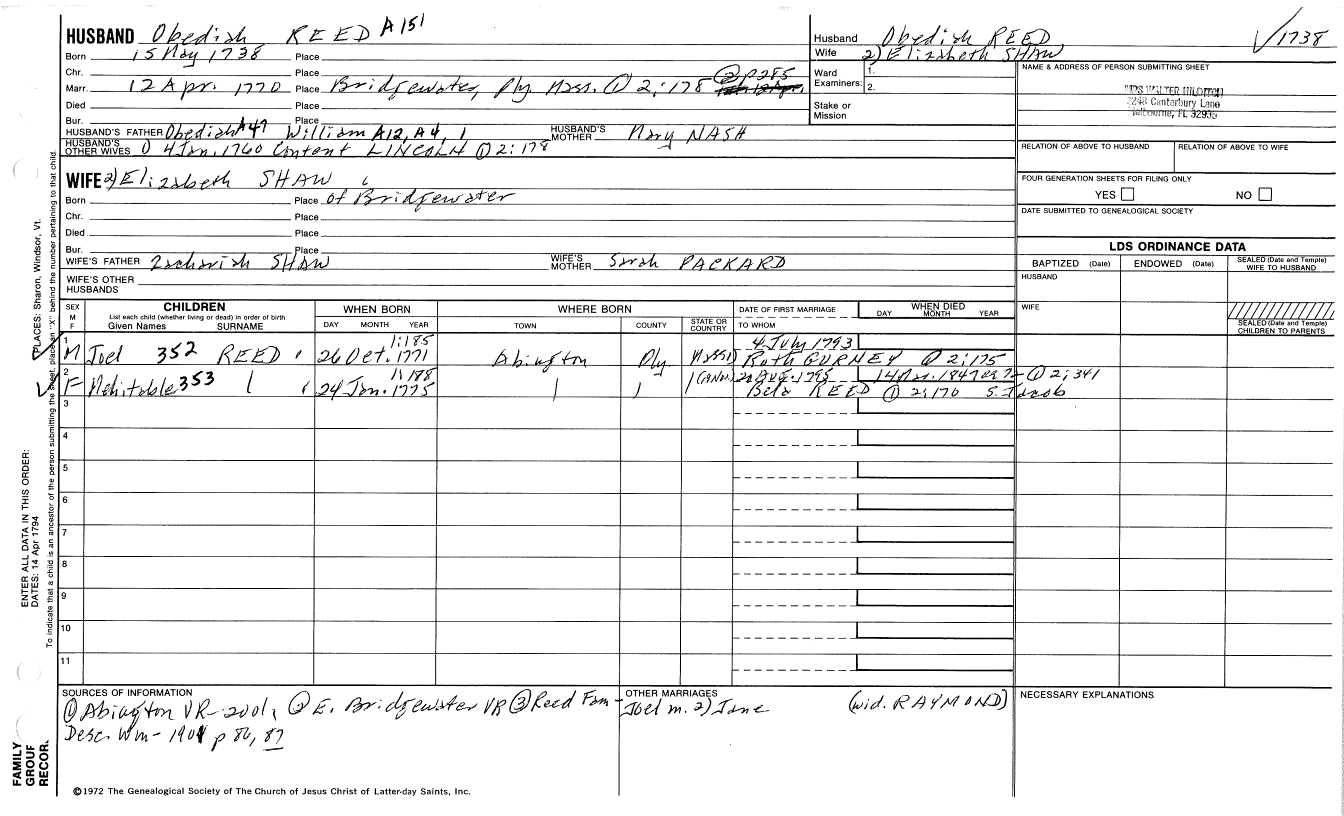 HUSBAND Obediah REED A151
Born 15 May 1738 Place
Chr. Place
Marr. 12 Apr. 1770 Place Bridgewater, Ply Mass. ① 2:178 ② p285
Died Place
Bur. Place
HUSBAND'S FATHER Obediah A47 William A12, A4, 1 HUSBAND'S MOTHER Mary NASH
HUSBAND'S OTHER WIVES 1) 4 Jan. 1760 Content LINCOLN ① 2:178
WIFE 2) Elizabeth SHAW
Born Place of Bridgewater
Chr. Place
Died Place
Bur. Place
WIFE'S FATHER Zachariah SHAW WIFE'S MOTHER Sarah PACKARD
WIFE'S OTHER HUSBANDS
Husband Obediah REED √1738
Wife 2) Elizabeth SHAW
Ward Examiners: 1. 2.
Stake or Mission
NAME & ADDRESS OF PERSON SUBMITTING SHEET
MRS WALTER
Canterbury Lane
Melbourne, FL
RELATION OF ABOVE TO HUSBAND RELATION OF ABOVE TO WIFE
FOUR GENERATION SHEETS FOR FILING ONLY
YES NO
DATE SUBMITTED TO GENEALOGICAL SOCIETY
LDS ORDINANCE DATA
BAPTIZED (Date) ENDOWED (Date) SEALED (Date and Temple) WIFE TO HUSBAND
HUSBAND
WIFE
SEALED (Date and Temple) CHILDREN TO PARENTS
SEX M F
CHILDREN
List each child (whether living or dead) in order of birth
Given Names SURNAME
WHEN BORN
DAY MONTH YEAR
WHERE BORN
TOWN COUNTY STATE OR COUNTRY
DATE OF FIRST MARRIAGE
TO WHOM
WHEN DIED
DAY MONTH YEAR
1 1:185 4 July 1793
M Joel 352 REED 26 Oct. 1771 Abington Ply Mass Ruth GURNEY ① 2:175
2 1:188 20 Aug. 1795 14 Mar. 1847 ① 2:341
F Mehitable 353 24 Jan. 1775 Bela REED ① 2:170 S. Jacob
3
4
5
6
7
8
9
10
11
SOURCES OF INFORMATION
① Abington VR-2001, ② E. Bridgewater VR ③ Reed Fam-
Desc. Wm- 1901 p 86, 87
OTHER MARRIAGES
Joel m. 2) Jane (wid. RAYMOND)
NECESSARY EXPLANATIONS
©1972 The Genealogical Society of The Church of Jesus Christ of Latter-day Saints, Inc.
PLACES: Sharon, Windsor, Vt.
ENTER ALL DATA IN THIS ORDER:
DATES: 14 Apr 1794
To indicate that a child is an ancestor of the person submitting the sheet, place an "X" behind the number pertaining to that child.
FAMILY
GROUP
RECOR.